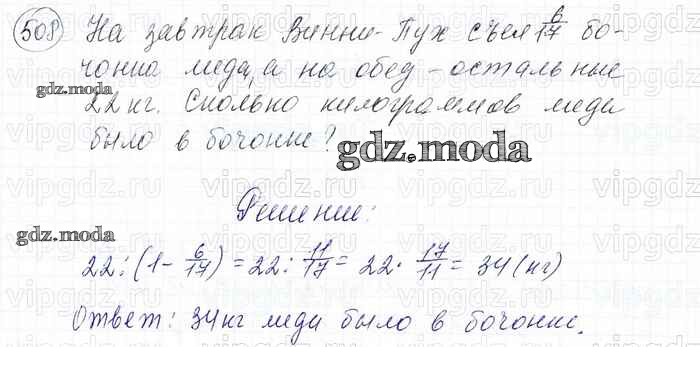 508 На завтрак Винни-Пух съел 6/17 бо-
чонка меда, а на обед - остальные
22 кг. Сколько килограммов меди
было в бочонке?
gdz.moda
gdz.moda
Решение:
gdz.moda
22:(1-6/17)=22:11/17=22·17/11=34(кг)
Ответ: 34 кг меди было в бочонке.
vipgdz.ru